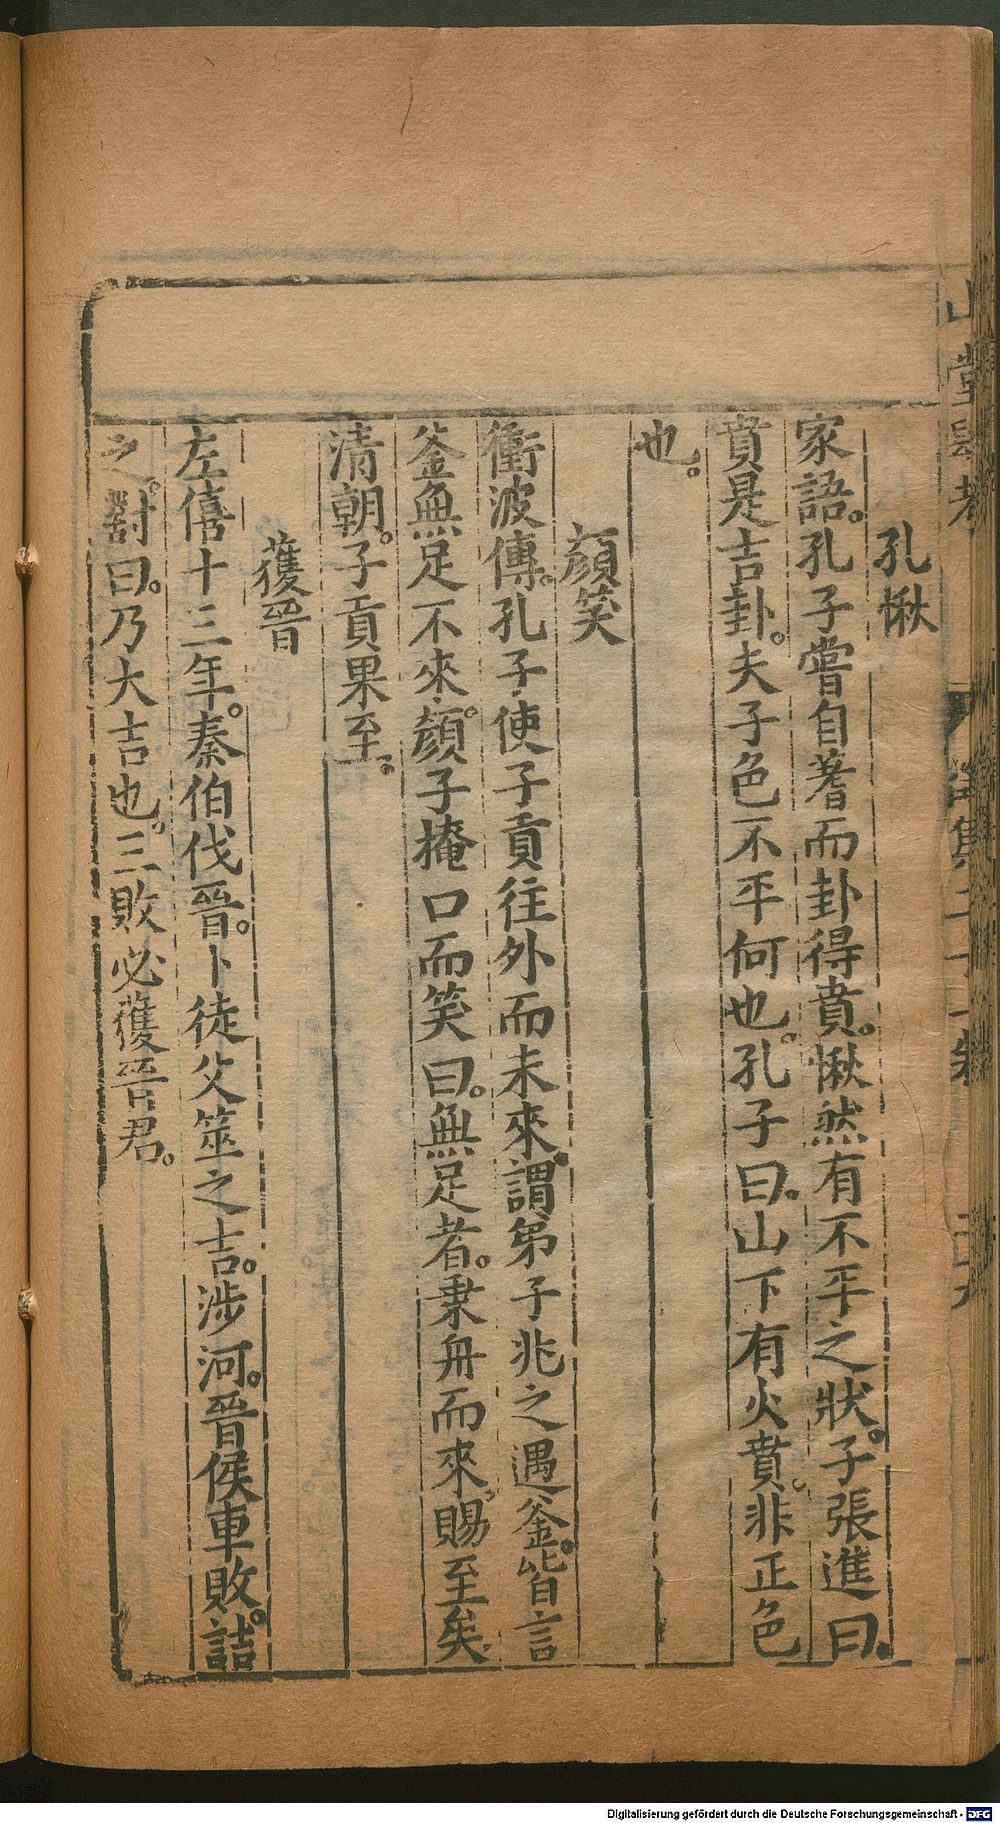 孔愀
家語。孔子嘗自蓍而卦得賁。愀然有不平之狀。子張進曰。
賁是吉卦。夫子色不平何也。孔子曰。山下有火賁。非正色
也。
顔笑
衝波傳。孔子使子貢往外而未來。謂弟子兆之遇釜。皆言
釜無足不來。顔子掩口而笑曰。無足者。乗舟而來。賜至矣
清朝。子貢果至。
獲晉
左僖十三年。秦伯伐晉。卜徒父筮之吉。涉河。晉侯車敗。詰
之。對曰。乃大吉也。三敗必獲晉君。
Digitalisierung gefördert durch die Deutsche Forschungsgemeinschaft - DFG